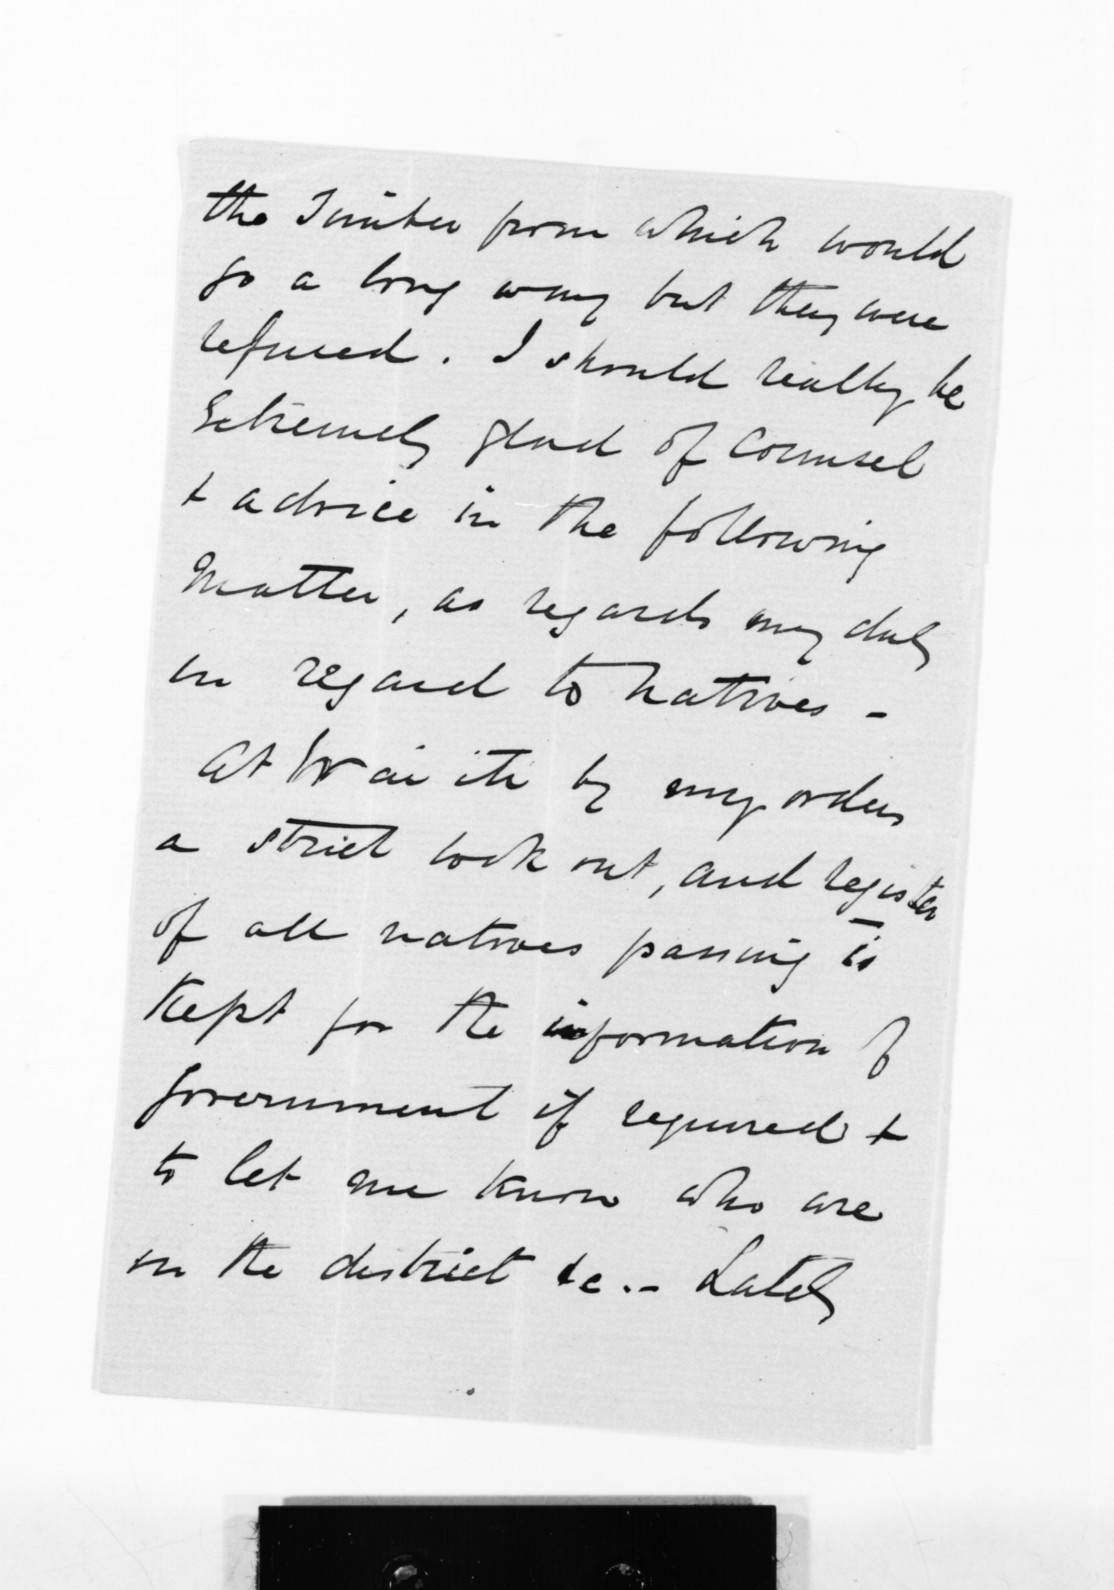 the Timber from which would
go a long way but they were
refused. I should really be
Extremely glad of Counsel
& advice in the following
Matter, as regards my duty
in regard to Natives -
At Waiiti by my orders
a strict look out, and register
of all natives passing is
Kept for the information of
Government if required &
to let me know who are
in the district &c. - Lately